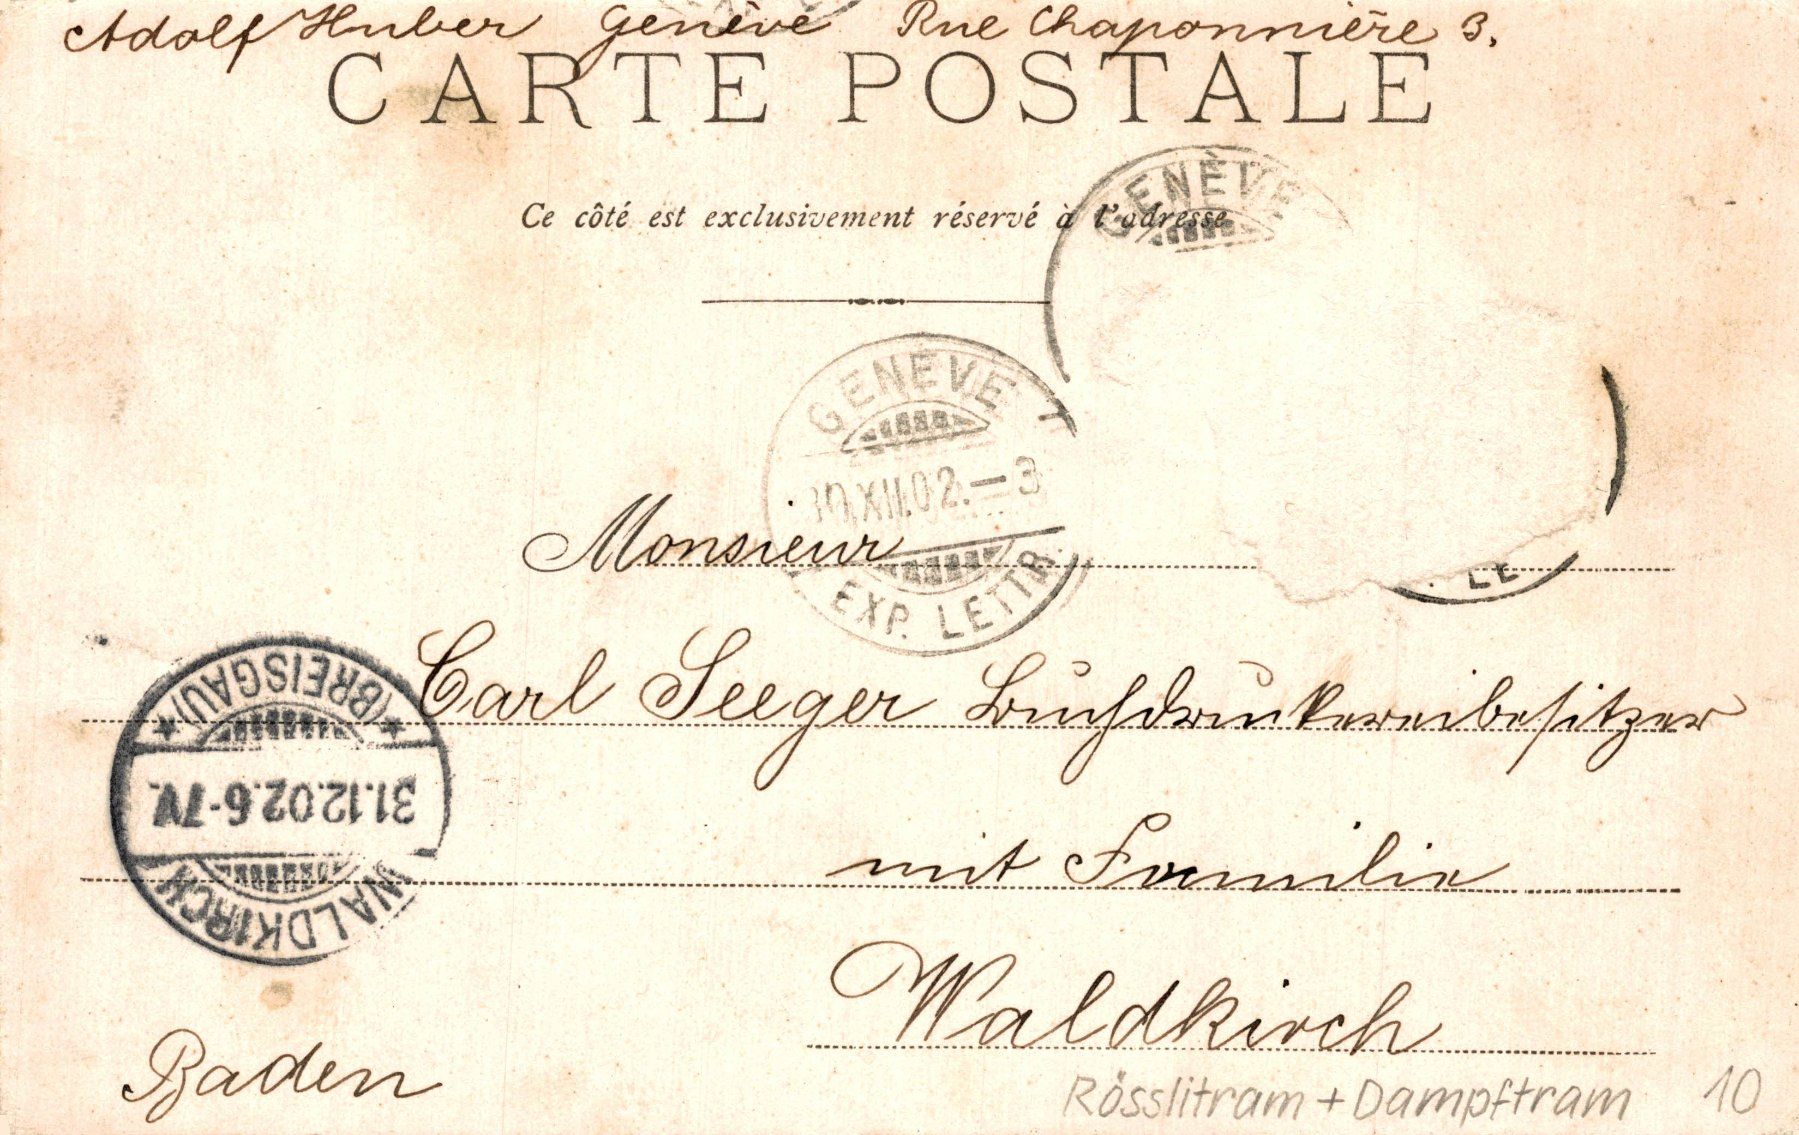 Adolf Huber Genève Rue Chaponnière 3.
CARTE POSTALE
Ce côté est exclusivement réservé à l'adresse
GENÈVE
GENÈVE 1
XII.02.-3
EXP. LETTR.
Monsieur
Carl Seeger Buchdruckereibesitzer
mit Familie
Waldkirch
Baden
WALDKIRCH
31.12.02.6-7V.
(BREISGAU)
Rösslitram + Dampftram 10